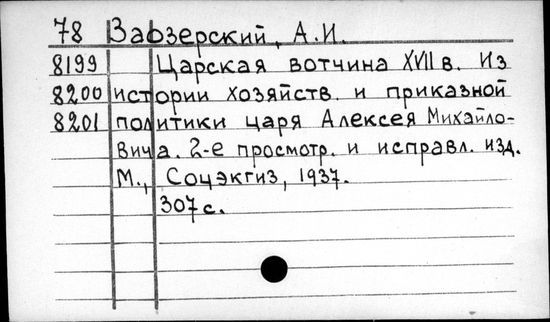 78 Заозерский, А.И.
8199 Царская вотчина XVII в. Из
8200 истории хозяйств. и приказной
8201 политики царя Алексея Михайло-
вича. 2-е просмотр. и исправл. изд.
М., Соцэкгиз, 1937.
307 с.